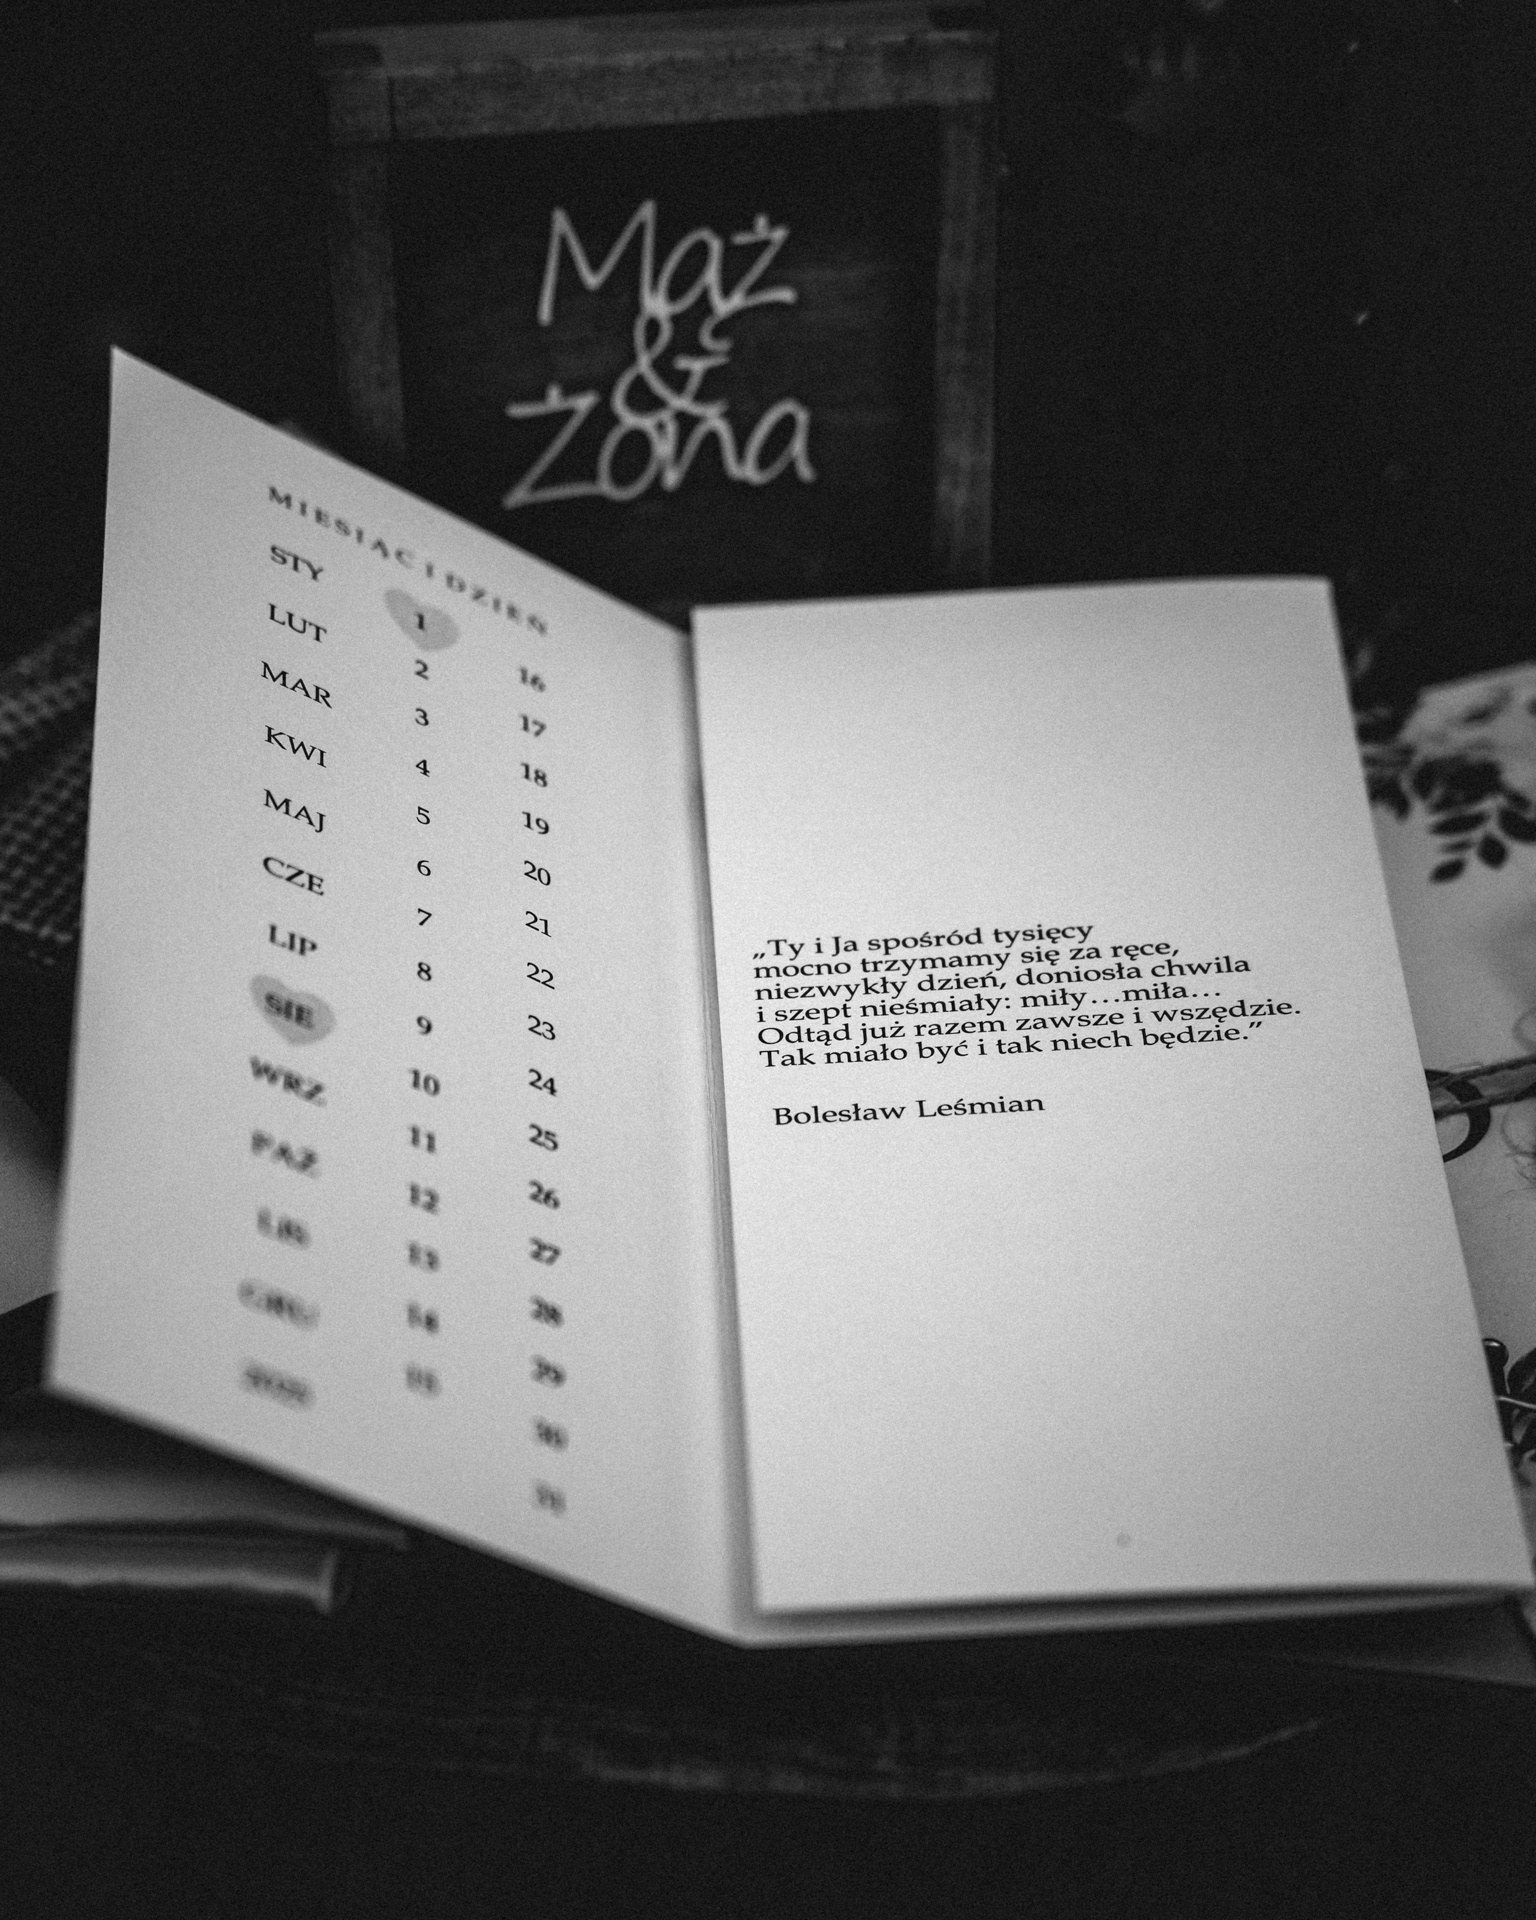 Mąż
&
Żona
MIESIĄC I DZIEŃ
STY
LUT
MAR
KWI
MAJ
CZE
LIP
SIE
WRZ
PAŹ
LIS
GRU
1
2
3
4
5
6
7
8
9
10
11
12
13
14
15
16
17
18
19
20
21
22
23
24
25
26
27
28
29
30
31
„Ty i Ja spośród tysięcy
mocno trzymamy się za ręce,
niezwykły dzień, doniosła chwila
i szept nieśmiały: miły...miła...
Odtąd już razem zawsze i wszędzie.
Tak miało być i tak niech będzie.”
Bolesław Leśmian